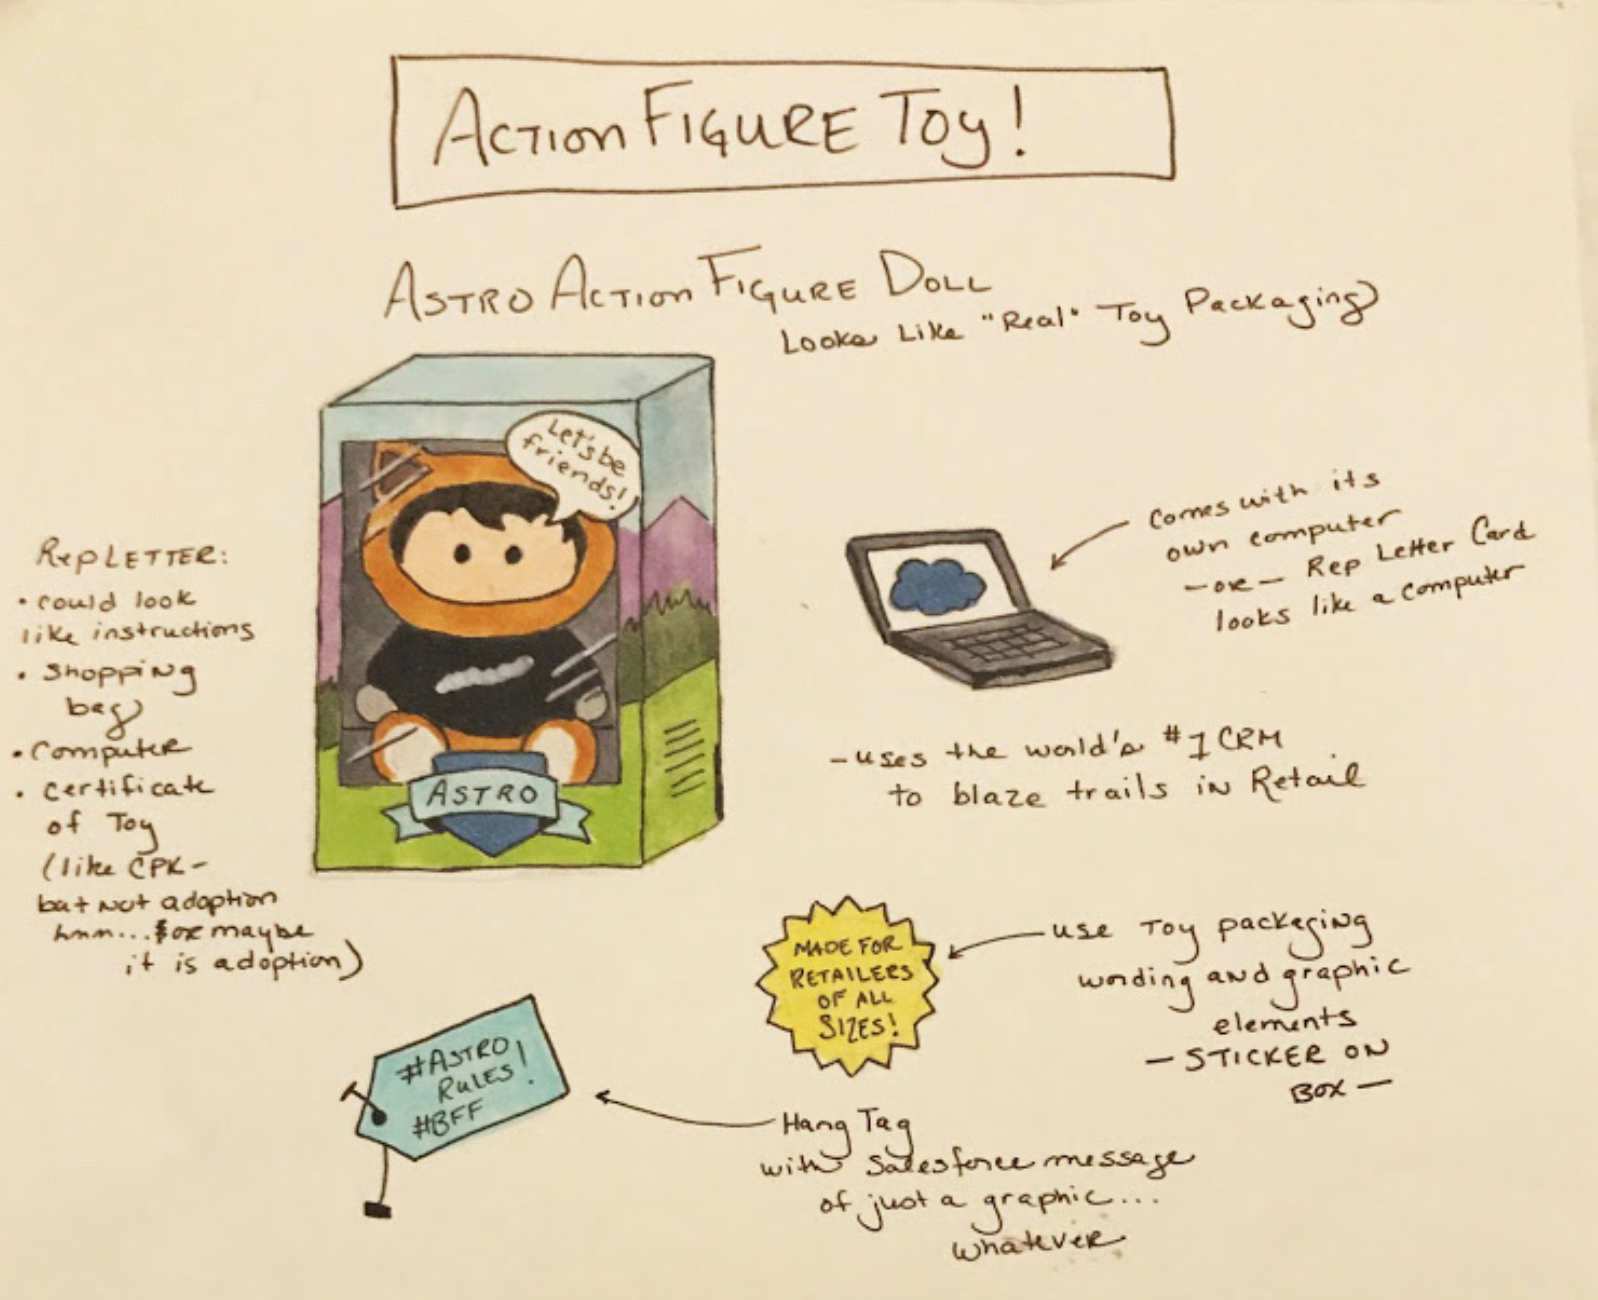 Action Figure Toy!
Astro Action Figure Doll
Looks Like "Real" Toy Packaging
Let's be
friends!
ASTRO
Rep Letter:
• could look
like instructions
• Shopping
bag
• Computer
• certificate
of Toy
(like CPK-
but not adoption
hmm... or maybe
it is adoption)
comes with its
own computer
— or — Rep Letter Card
looks like a computer
- uses the world's #1 CRM
to blaze trails in Retail
MADE FOR
RETAILERS
OF ALL
SIZES!
use Toy packaging
wording and graphic
elements
— STICKER ON
BOX —
#ASTRO
RULES!
#BFF
Hang Tag
with Salesforce message
of just a graphic...
whatever